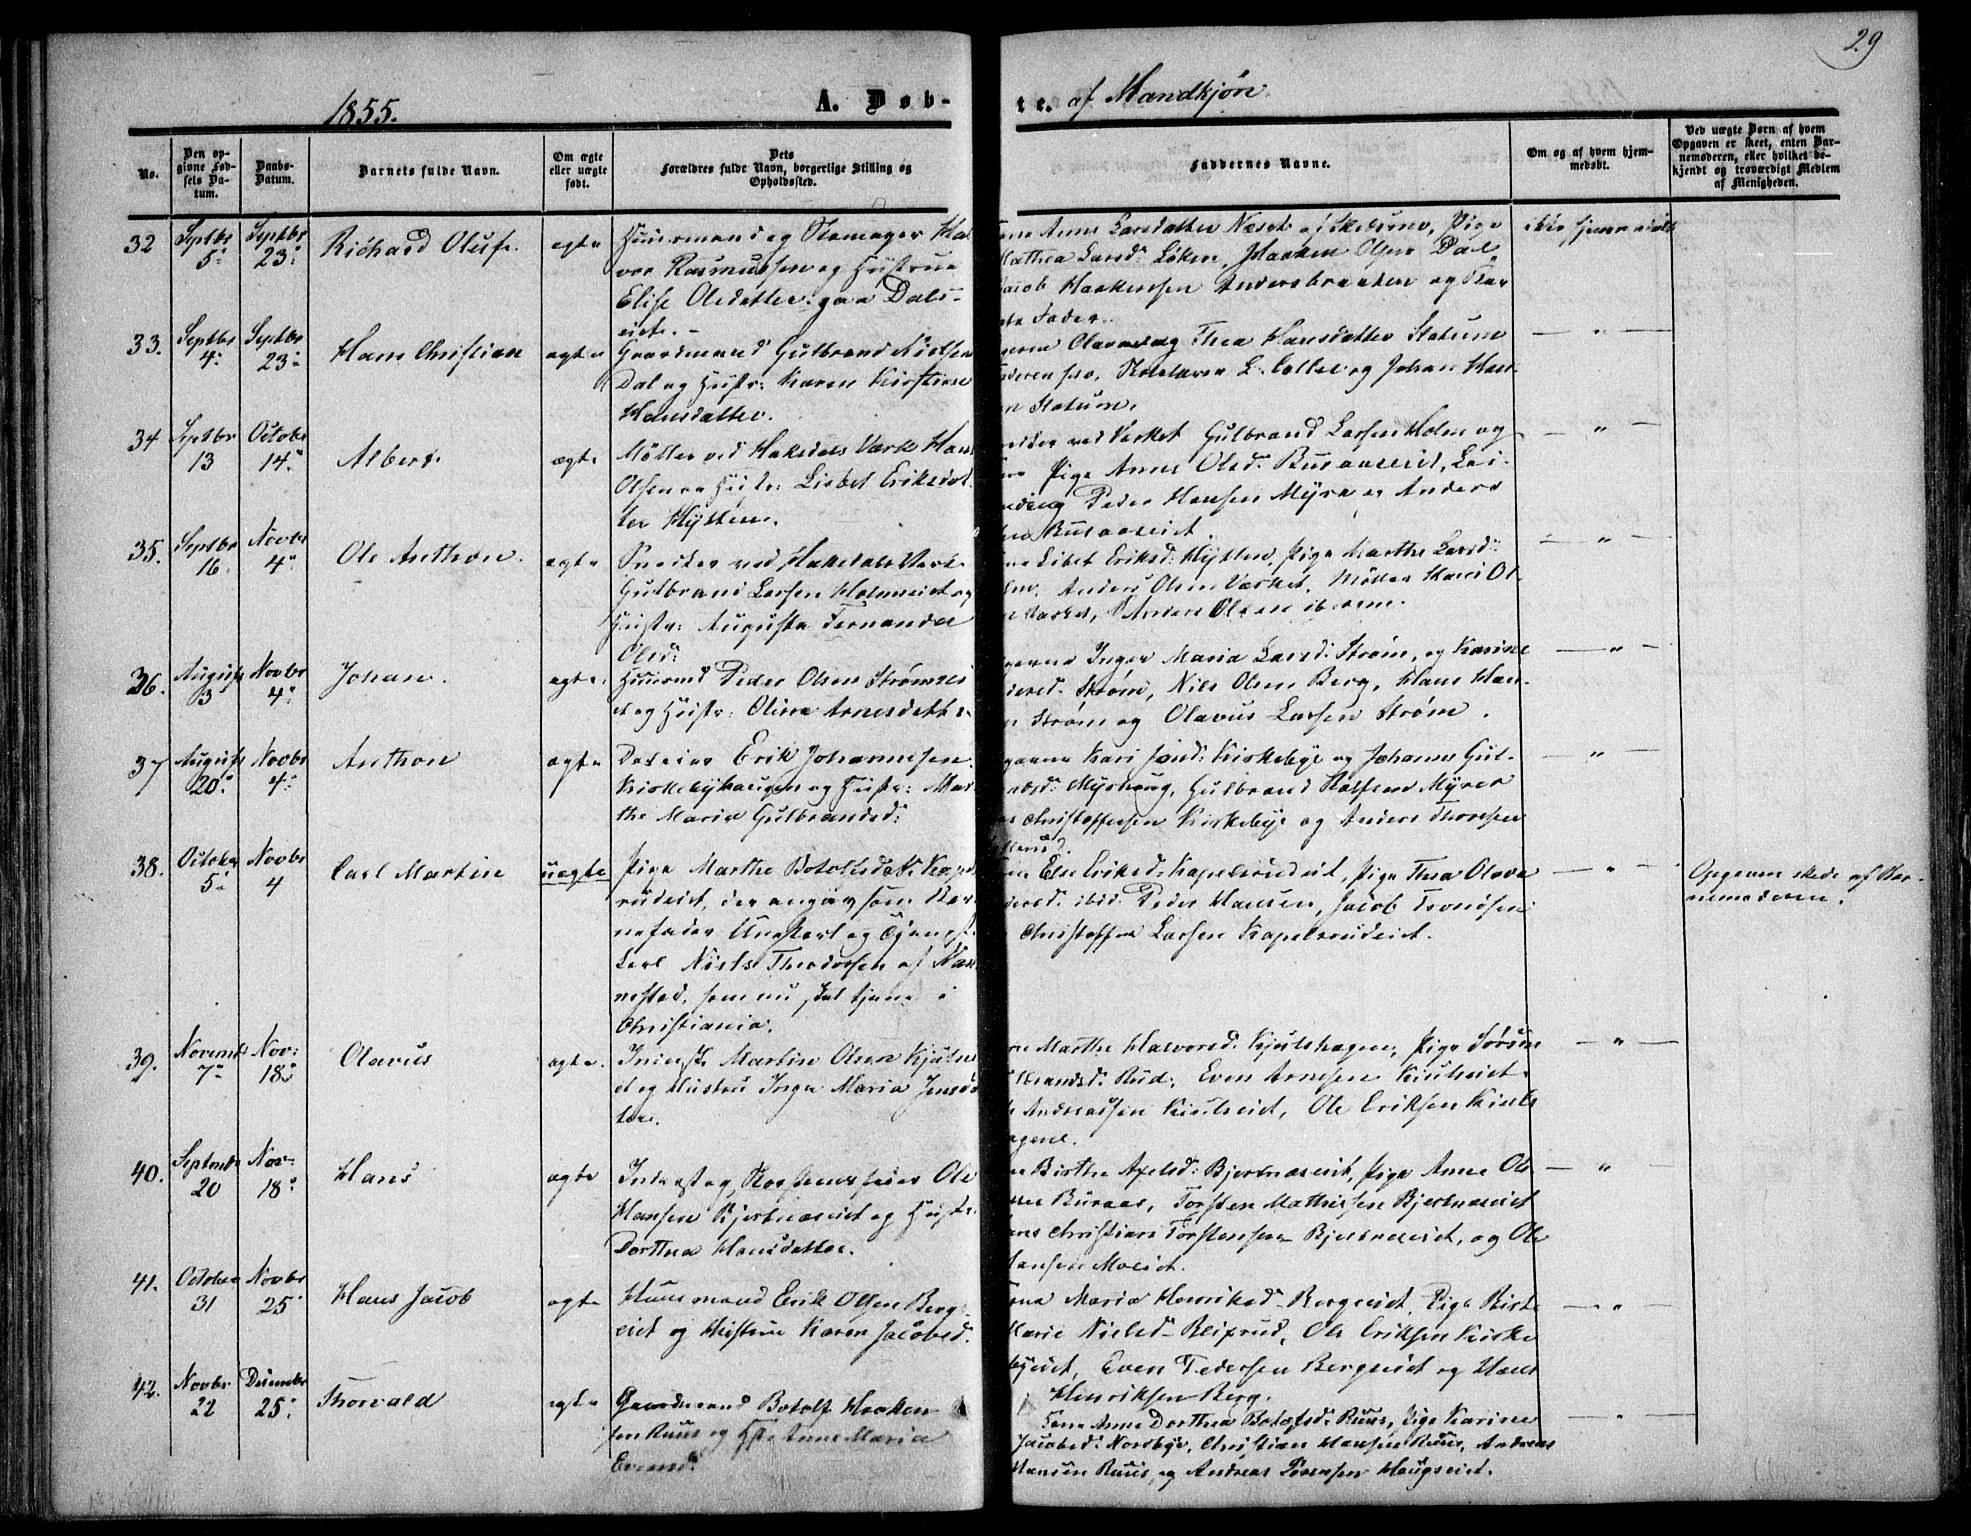 29
1855.
A. Døb-
te. af Mandkjøn.
No.
Den op-
givne Fød-
sels Da-
tum.
Daabs-
Datum.
Barnets fulde Navn.
Om ægte
eller uægte
født.
Dets
Forældres fulde Navn, borgerlige Stilling og
Opholdssted.
Faddernes Navne.
Om og af hvem hjem-
medøbt.
Ved uægte Børn af hvem
Opgaven er skeet, enten Bar-
nemoderen, eller hvilket be-
kjendt og troværdigt Medlem
af Menigheden.
32
Septbr
5
Septbr
23
Richard Oluf.
ægte
Huusmand og Skomager Hal
vor Rasmussen og Hustrue
Elise Olsdatter paa Dals-
eiet.
Anne Larsdatter Næset af Skedsmo, Pige
Mathea Larsd: Løken, Haaken Olsen Dal
Jacob Haakensen Andersbraaten og Bar
nets Fader.
ikke hjemmedøbt
33.
Septbr
4
Septbr
23
Hans Christian
ægte
Gaardmand Gulbrand Nielsen
Dal og Hustr: Karen Kirstine
Hansdatter.
Olava og Thea Hansdatter Statum
L. Colle og Johan Han
en Statum.
— " —
34
Septbr
13
October
14
Albert.
ægte
Møller ved Hakedals Værk Hans
Olsen og Hustr: Lisbet Eriksdat
ter Hytten.
ved Værket Gulbrand Larsen Holm og
Pige Anne Olsd: Buraaseiet, Lei-
lending Peder Hansen Myra og Anders
Buraaseiet
— " —
35.
Septbr
16
Novbr
4
Ole Anthon.
ægte
Snedker ved Hakedals Værk
Gulbrand Larsen Holmeiet og
Hustr: Augusta Fernanda
Olsd:
Lisbet Eriksd: Hytten, Pige Marthe Larsd:
Holm, Anders Olsen Værket, Møller Hans Ol-
sen Værket, Anders Olsen ibidem.
— " —
36.
August
3
Novbr
4
Johan.
ægte
Huusmd Peder Olsen Strømsei
et og Hustr: Oline Arnesdatter
Inger Maria Larsd: Strøm, og Karine
Strøm, Nils Olsen Berg, Hans Han-
en Strøm og Olavus Larsen Strøm.
— " —
37
August
20
Novbr
4
Anthon
ægte
Erik Johannesen
Kirkebyhaugen og Hustr: Mar
the Maria Gulbrandsd:
Kari Kirkebye og Johanne Gul-
brandsd: Myrhaug, Gulbrand Rolfsen Myrer
Christoffersen Kirkebye og Anders Thoresen
— " —
38.
October
5
Novbr
4
Carl Martin
uægte
Pige Marthe Botolfsdatt. Kapels
rudeiet, der angav som Bar
nefader Ungkarl og Tjeneste
karl Niels Theodorsen af Nan
nestad, som nu skal tjene i
Christiania.
Else Eriksd: Kapelsrudeiet, Pige Thea Olava
ibid: Peder Hansen, Jacob Trondsen
Christoffer Larsen Kapelsrudeiet.
— " —
Opgaven skede af Bar-
nemoderen.
39.
Novembr
7
Nov:
18
Olavus
ægte
Inderst Martin Olsen Kjulsei
et og Hustru Inger Maria Jensdat
ter.
Marthe Halvorsd. Kjulshagen, Pige Sørine
Rud, Even Arnesen Kiulseiet
Andreassen Kiulseiet, Ole Eriksen Kiuls
hagene.
— " —
40.
Septembr
20
Nov
18
Hans
ægte
Inderst og Skorsteensfeier Ole
Hansen Bjertnæseiet og Hustr.
Dorthea Hansdatter.
Birthe Axelsd: Bjertnæseiet, Pige Anne Ol
Buraas, Torsten Mathisen Bjertnæseiet
Hans Christian Torstensen Bjertnæseiet, og Ole
Hansen Moeiet.
— "
41.
October
31
Novbr
25
Hans Jacob
ægte
Huusmand Erik Olsen Berg-
eiet og Hustrue Karen Jacobsd.
Kone Maria Henriksd. Bergseiet, Pige Birte
Marie Nielsd. Bleixrud, Ole Eriksen Kirke
byeiet, Even Pedersen Bergseiet og Hans
Henriksen Berg.
— " —
42.
Novbr
22
Decembr
25
Thorvald
ægte
Gaardmand Botolf Haaken
sen Ruus og Hstr Anne Maria
Evensd:
Kone Anne Dorthea Botolfsd: Ruus, Pige Karine
Jacobsd: Nordbye, Christian Hansen Ruus, Andreas
Hansen Ruus, og Andreas Sørensen Haugseiet.
— " —